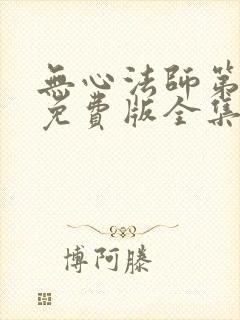 無心法師第
免費版全集
博阿滕